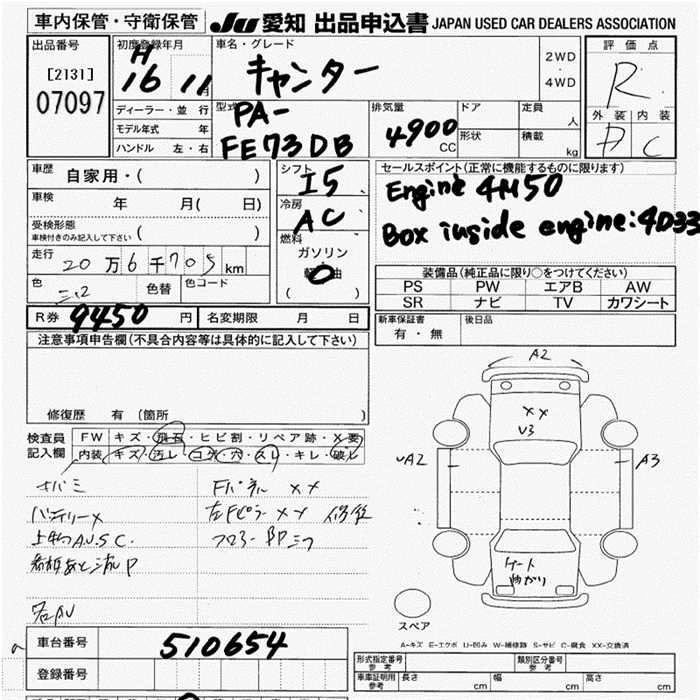 車内保管・守衛保管
JU 愛知 出品申込書 JAPAN USED CAR DEALERS ASSOCIATION
出品番号
[2131]
07097
初度登録年月
H
16 11
ディーラー・並行
モデル年式 年
ハンドル 左・右
車名・グレード
キャンター
2WD
・
4WD
型式
PA-
FE73DB
排気量
4900
CC
ドア
形状
定員
人
積載
kg
評価点
R
外装 内装
D C
車歴 自家用・( )
車検 年 月( 日)
受検形態
車検付きのみ記入して下さい ( )
走行 20万6千705km
色 色替 色コード
シフト
I5
冷房
AC
燃料
ガソリン
軽油
( )
R券 9450 円 名変期限 月 日
セールスポイント(正常に機能するものに限ります)
Engine 4M50
Box inside engine:4D33
装備品(純正品に限り○をつけてください)
PS PW エアB AW
SR ナビ TV カワシート
新車保証書
有・無
後日品
注意事項申告欄(不具合内容等は具体的に記入して下さい)
修復歴 有 (箇所 )
検査員
記入欄
FW キズ・飛石・ヒビ割・リペア跡・X要
内装 キズ・汚レ・コゲ・穴・スレ・キレ・破レ
サバミ
バッテリーX
上物A.U.S.C.
Fパネル XX
左Fピラー XX 修復
A2
XX
U3
UA2
A3
ゲート
曲がり
スペア
A-キズ E-エクボ U-凹み W-補修跡 S-サビ C-腐食 XX-交換済
車台番号 510654
登録番号
型式指定番号
参考
類別区分番号
参考
車庫証明用
参考
長さ cm 幅 cm 高さ cm